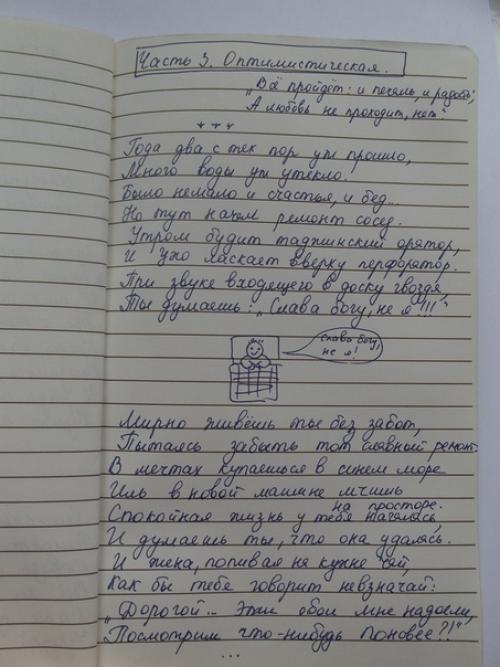 Часть 3. Оптимистическая.
„Всё пройдёт: и печаль, и радость,
А любовь не проходит, нет“
***
Года два с тех пор уж прошло,
Много воды уж утекло.
Было немало и счастья, и бед...
Но тут начал ремонт сосед.
Утром будит таджикский оратор,
И ухо ласкает вверху перфоратор.
При звуке входящего в доску гвоздя,
Ты думаешь: „Слава богу, не я!!!“
слава богу,
не я!
Мирно живёшь ты без забот,
Пытаясь забыть тот славный ремонт.
В мечтах купаешься в синем море
Иль в новой машине мчишь
на просторе.
Спокойная жизнь у тебя началась,
И думаешь ты, что она удалась.
И жена, попивая на кухне чай,
Как бы тебе говорит невзначай:
„Дорогой... Эти обои мне надоели,
Посмотрим что-нибудь поновее?!“
...